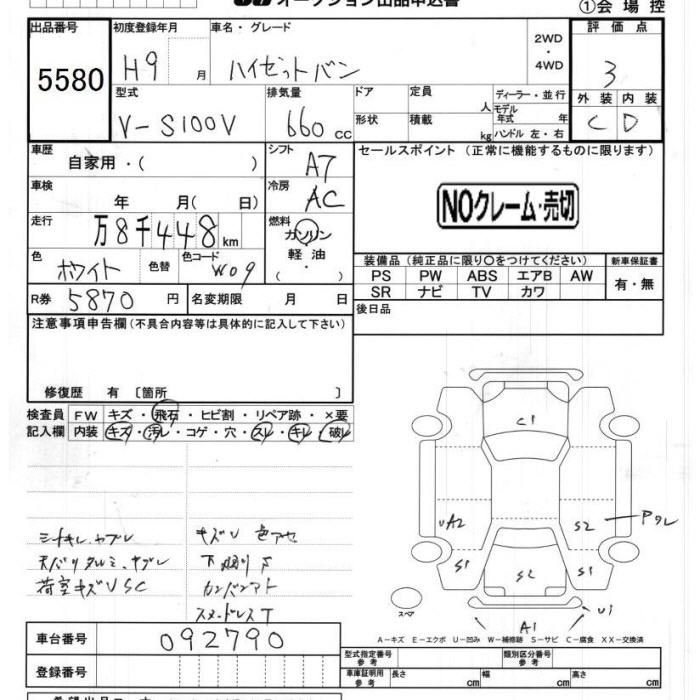 オークション出品申込書
①会場控
出品番号 初度登録年月 車名・グレード 2WD・4WD 評価点
5580 H9 月 ハイゼットバン 3
型式 排気量 ドア 定員 人 ディーラー・並行 外装 内装
V-S100V 660 cc 形状 積載 kg モデル年式 年 ハンドル 左・右 C D
車歴 自家用・( ) シフト A7 セールスポイント (正常に機能するものに限ります)
車検 年 月( 日) 冷房 AC
NOクレーム・売切
走行 万8千448km 燃料 ガソリン 軽油 ・( )
色 ホワイト 色替 色コード W09
装備品 (純正品に限り○をつけてください) 新車保証書
PS PW ABS エアB AW 有・無
SR ナビ TV カワ
R券 5870 円 名変期限 月 日 後日品
注意事項申告欄 (不具合内容等は具体的に記入して下さい)
修復歴 有 〔箇所 〕
検査員 FW キズ・飛石・ヒビ割・リペア跡・×要
記入欄 内装 キズ・汚レ・コゲ・穴・スレ・キレ・破レ
シートキレ、ヤブレ キズU 色アセ
天バリタルミ、ヤブレ 下廻りS
荷室キズUSC カンバンアト
スタッドレスT
C1
UA2 S2 アタレ
S1 S2 S1
スペア A1 U1
A-キズ E-エクボ U-凹み W-補修跡 S-サビ C-腐食 XX-交換済
車台番号 092790
型式指定番号 参考 類別区分番号 参考
登録番号 車庫証明用 参考 長さ cm 幅 cm 高さ cm